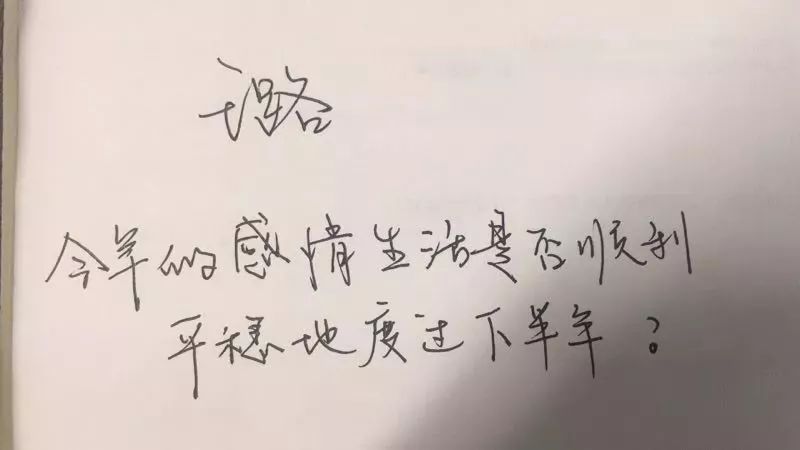 璐
今年的感情生活是否顺利
平稳地度过下半年？